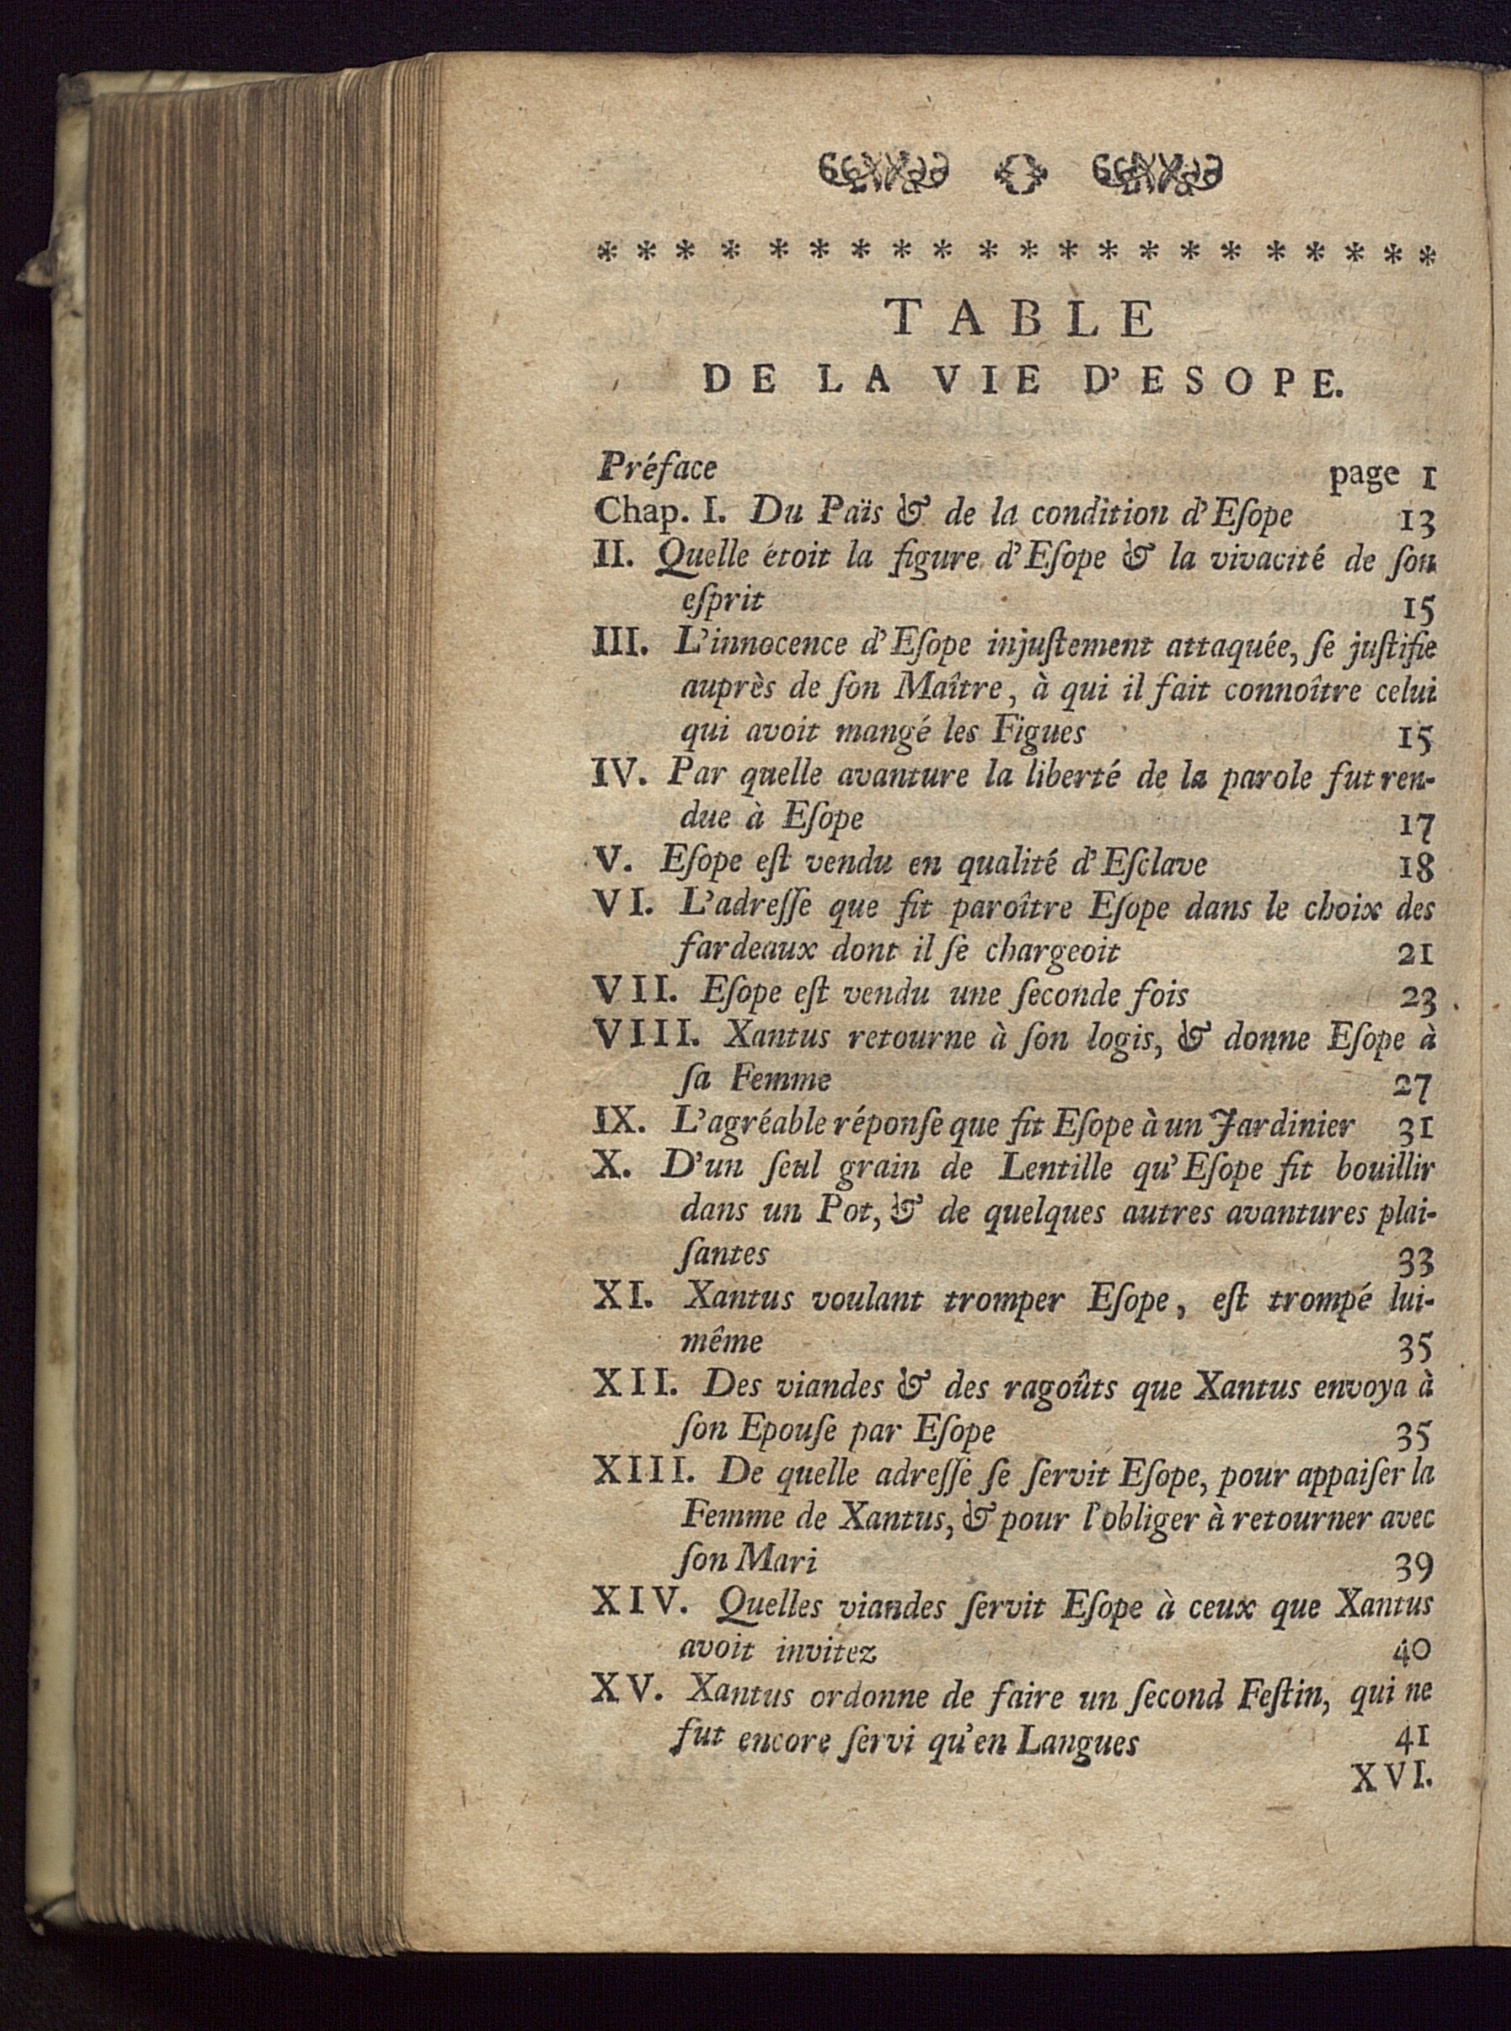 * * * * * * * * * * * * * * * * * * * *
TABLE
DE LA VIE D'ESOPE.
Préface page 1
Chap. I. Du Païs & de la condition d'Eſope 13
II. Quelle étoit la figure d'Eſope & la vivacité de ſon
eſprit 15
III. L'innocence d'Eſope injuſtement attaquée, ſe juſtifie
auprès de ſon Maître, à qui il fait connoître celui
qui avoit mangé les Figues 15
IV. Par quelle avanture la liberté de la parole fut ren-
due à Eſope 17
V. Eſope eſt vendu en qualité d'Eſclave 18
VI. L'adreſſe que fit paroître Eſope dans le choix des
fardeaux dont il ſe chargeoit 21
VII. Eſope eſt vendu une ſeconde fois 23
VIII. Xantus retourne à ſon logis, & donne Eſope à
ſa Femme 27
IX. L'agréable réponſe que fit Eſope à un Jardinier 31
X. D'un ſeul grain de Lentille qu'Eſope fit bouillir
dans un Pot, & de quelques autres avantures plai-
ſantes 33
XI. Xantus voulant tromper Eſope, eſt trompé lui-
même 35
XII. Des viandes & des ragoûts que Xantus envoya à
ſon Epouſe par Eſope 35
XIII. De quelle adreſſe ſe ſervit Eſope, pour appaiſer la
Femme de Xantus, & pour l'obliger à retourner avec
ſon Mari 39
XIV. Quelles viandes ſervit Eſope à ceux que Xantus
avoit invitez 40
XV. Xantus ordonne de faire un ſecond Feſtin, qui ne
fut encore ſervi qu'en Langues 41
XVI.